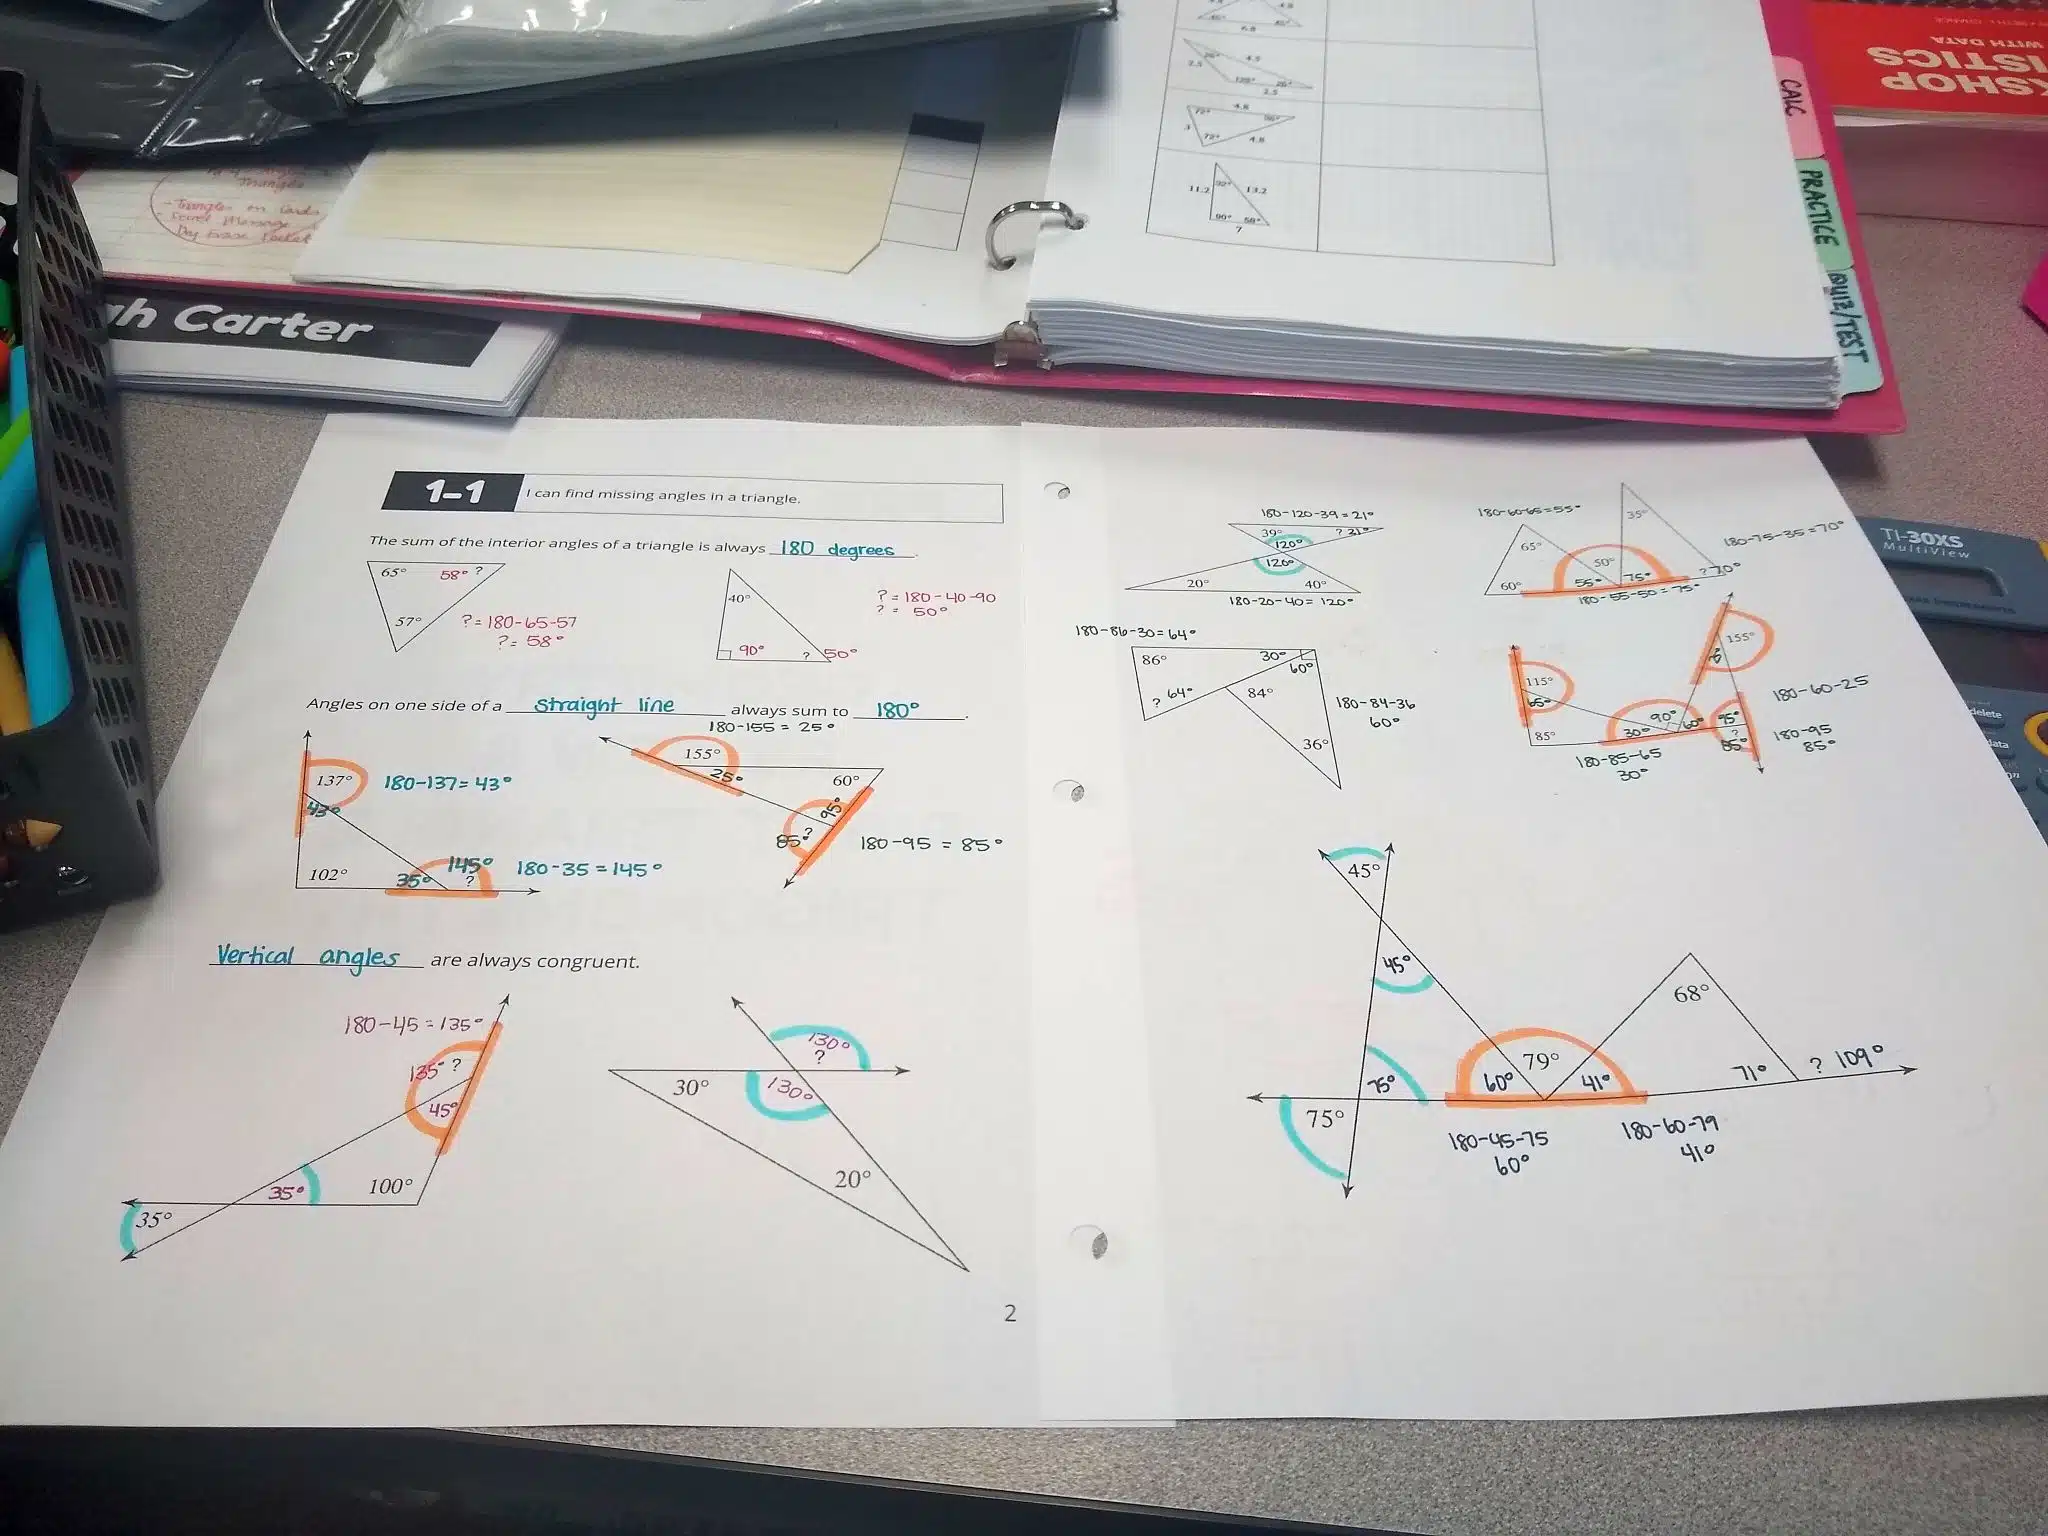 Triangles
- Triangles on Cards
KSHOP
ISTICS
WITH DATA
CALC
PRACTICE
QUIZ/TEST
4.5
2.5
2.5
4.8
72°
3
72°
4.8
11.2
32°
13.2
90°
58°
7
ah Carter
TI-30XS
MultiView
delete
1-1 I can find missing angles in a triangle.
The sum of the interior angles of a triangle is always 180 degrees.
65° 58° ?
57°
? = 180-65-57
? = 58°
40°
90° ? 50°
? = 180-40-90
? = 50°
Angles on one side of a straight line always sum to 180°.
137°
43°
180-137 = 43°
102° 35° 145° ?
180-35 = 145°
180-155 = 25°
155°
25°
60°
95°
85° ?
180-95 = 85°
Vertical angles are always congruent.
180-45 = 135°
135° ?
45°
35° 100°
35°
130°
?
30° 130°
20°
2
180-120-39 = 21°
39° ? 21°
120°
120°
20° 40°
180-20-40 = 120°
180-60-65 = 55°
65°
60°
35°
50°
55° 75°
? 70°
180-75-35 = 70°
180-55-50 = 75°
180-86-30 = 64°
86° 30°
60°
? 64°
84°
36°
180-84-36
60°
155°
115°
65°
85°
90°
30° 60° 95°
?
85°
180-60-25
180-95
85°
180-85-65
30°
45°
45°
75°
75°
79°
60° 41°
68°
71° ? 109°
180-45-75
60°
180-60-79
41°